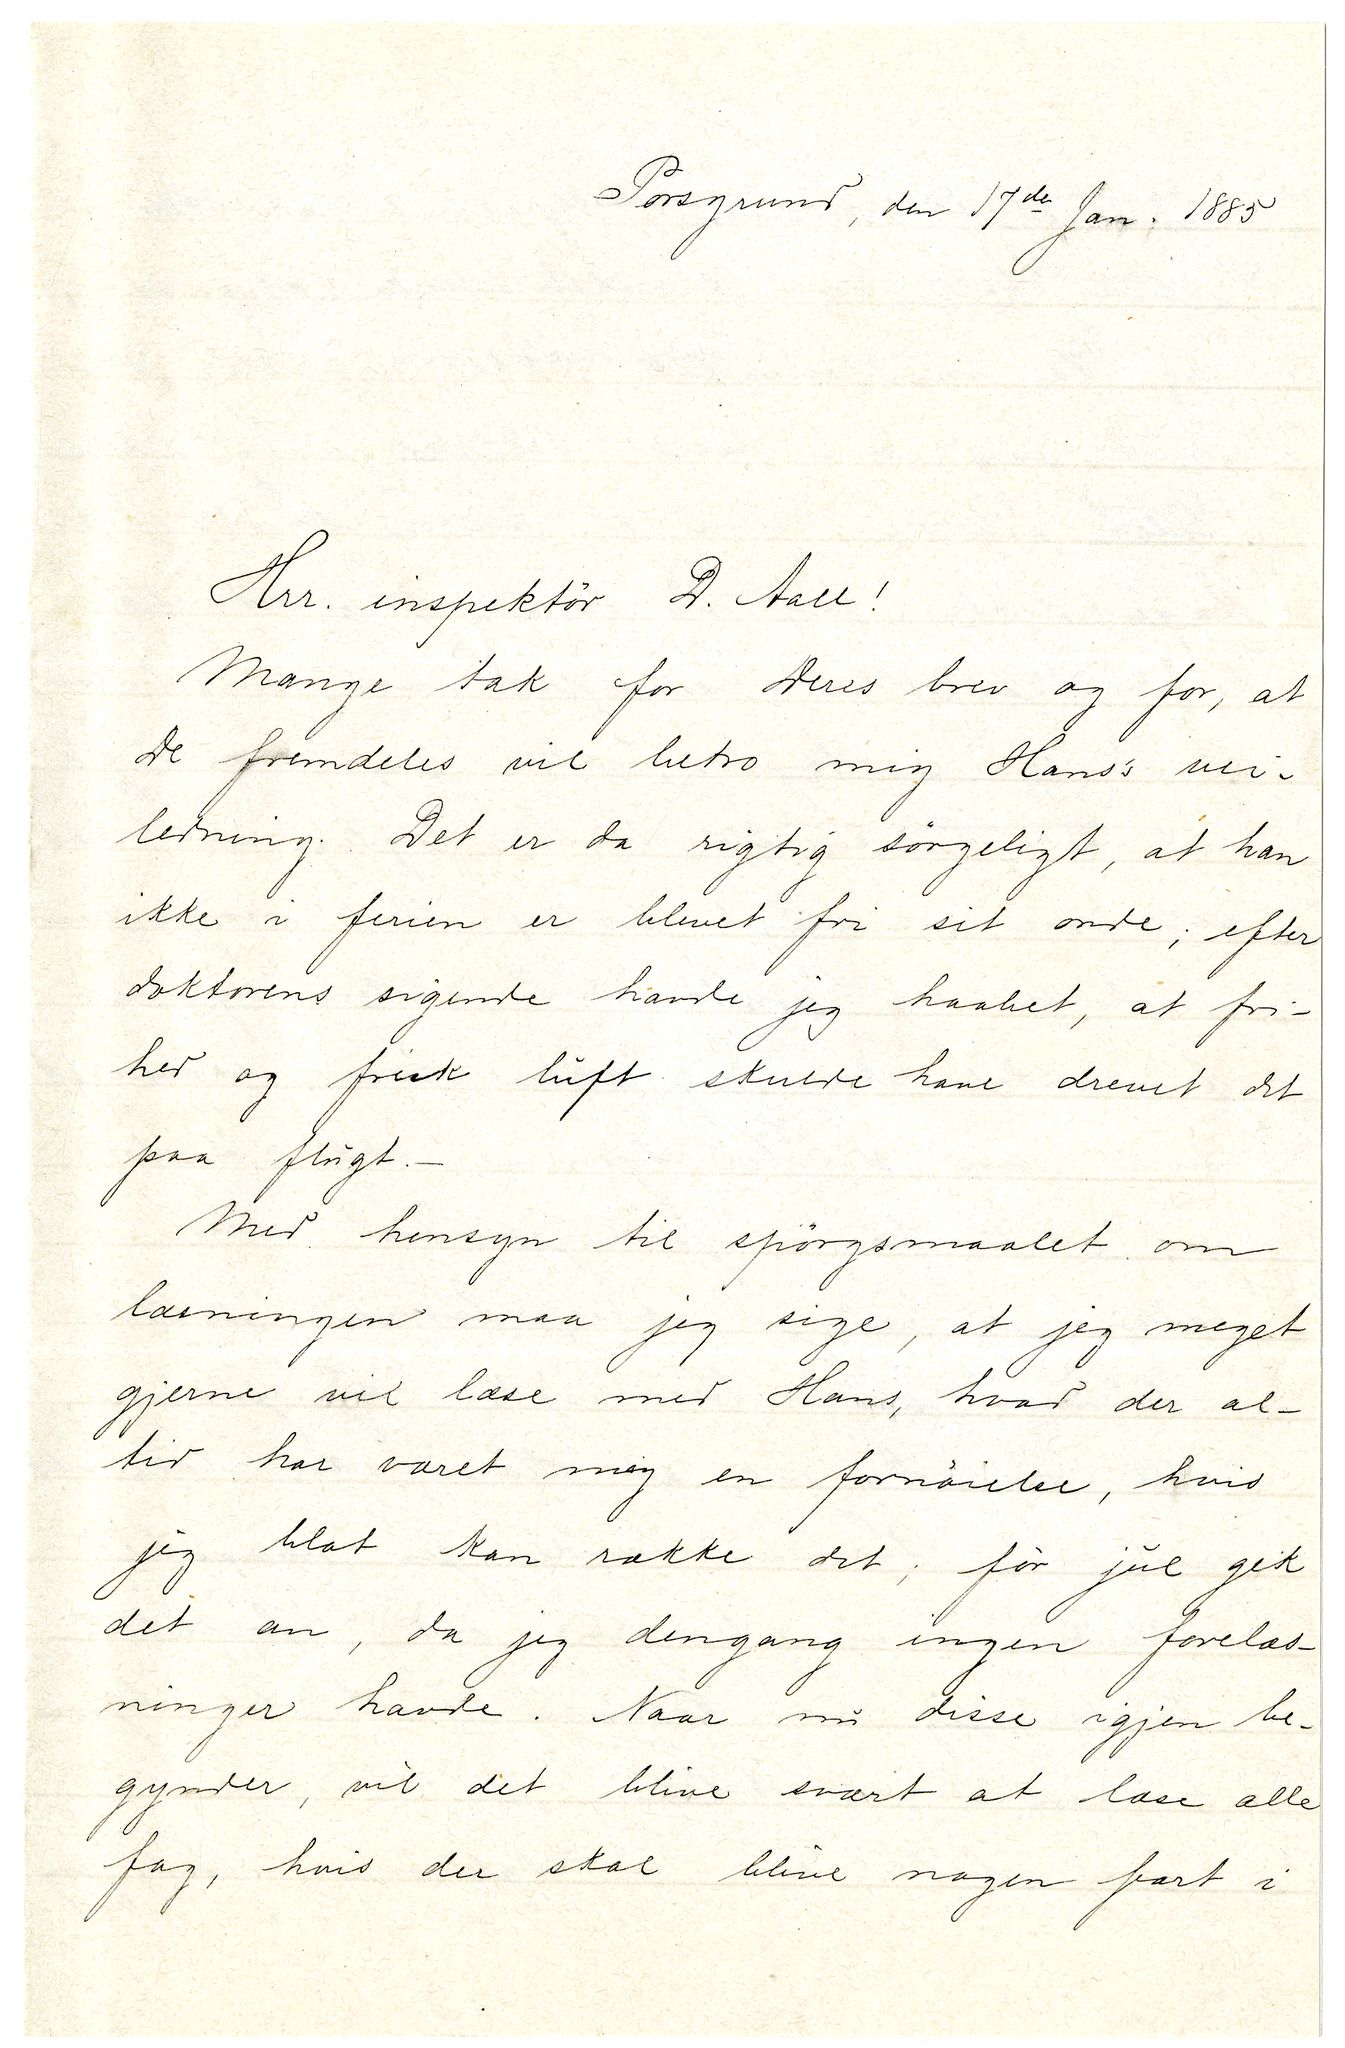 Porsgrund, den 17de Jan. 1885
Hrr. inspektör D. Aall!
Mange tak for Deres brev og for, at
De fremdeles vil betro mig Hans's vei-
ledning. Det er da rigtig sörgeligt, at han
ikke i ferien er blevet fri sit onde; efter
doktorens sigende havde jeg haabet, at fri-
hed og frisk luft skulde have drevet det
paa flugt. —
Med hensyn til spörgsmaalet om
læsningen maa jeg sige, at jeg meget
gjerne vil læse med Hans, hvad der al-
tid har været mig en fornöielse, hvis
jeg blot kan række det; för jul gik
det an, da jeg dengang ingen forelæs-
ninger havde. Naar nu disse igjen be-
gynder, vil det blive svært at læse alle
fag, hvis der skal blive nogen fart i